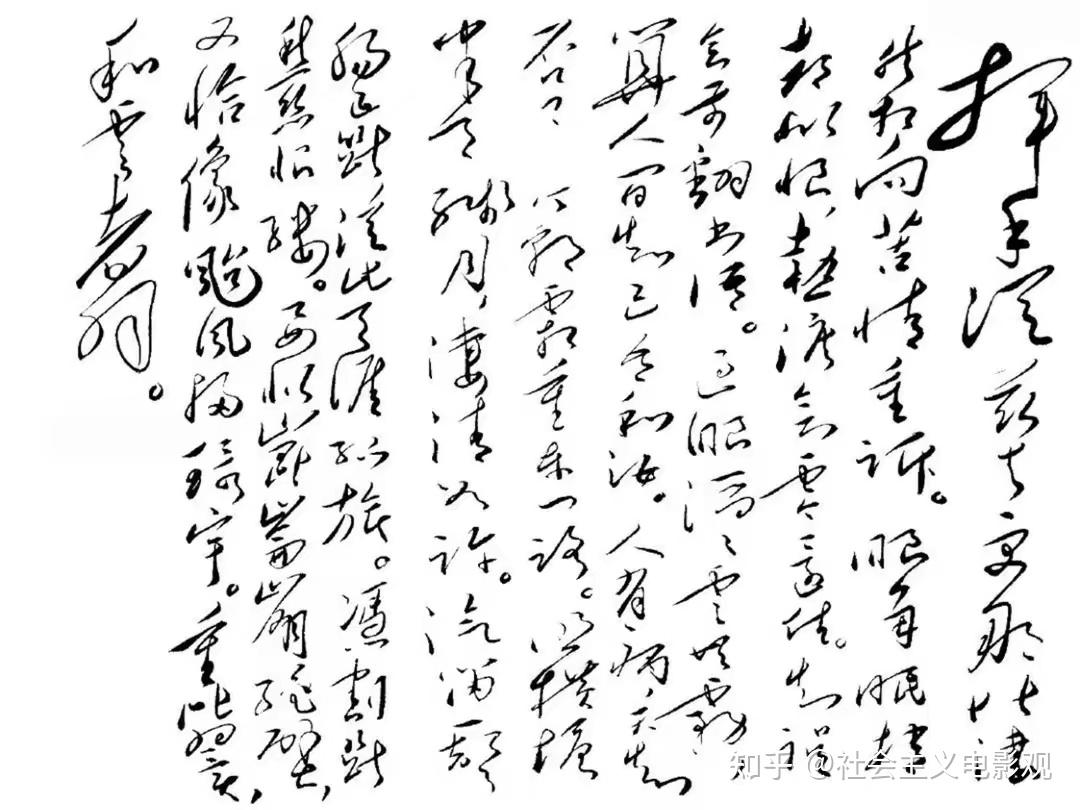 挥手从兹去更那堪凄
然相向苦情重诉。眼角眉梢
都似恨,热泪欲零还住。知误
会前翻书语。过眼滔滔云共雾,
算人间知己吾和汝。人有病天知
否? 今朝霜重东门路。照横塘
半天残月,凄清如许。汽笛一声
肠已断从此天涯孤旅。凭割断
愁丝恨缕。要似崑崙崩绝壁,
又恰像颱风扫环宇。重比翼,
和云翥。
知乎 @社会主义电影观